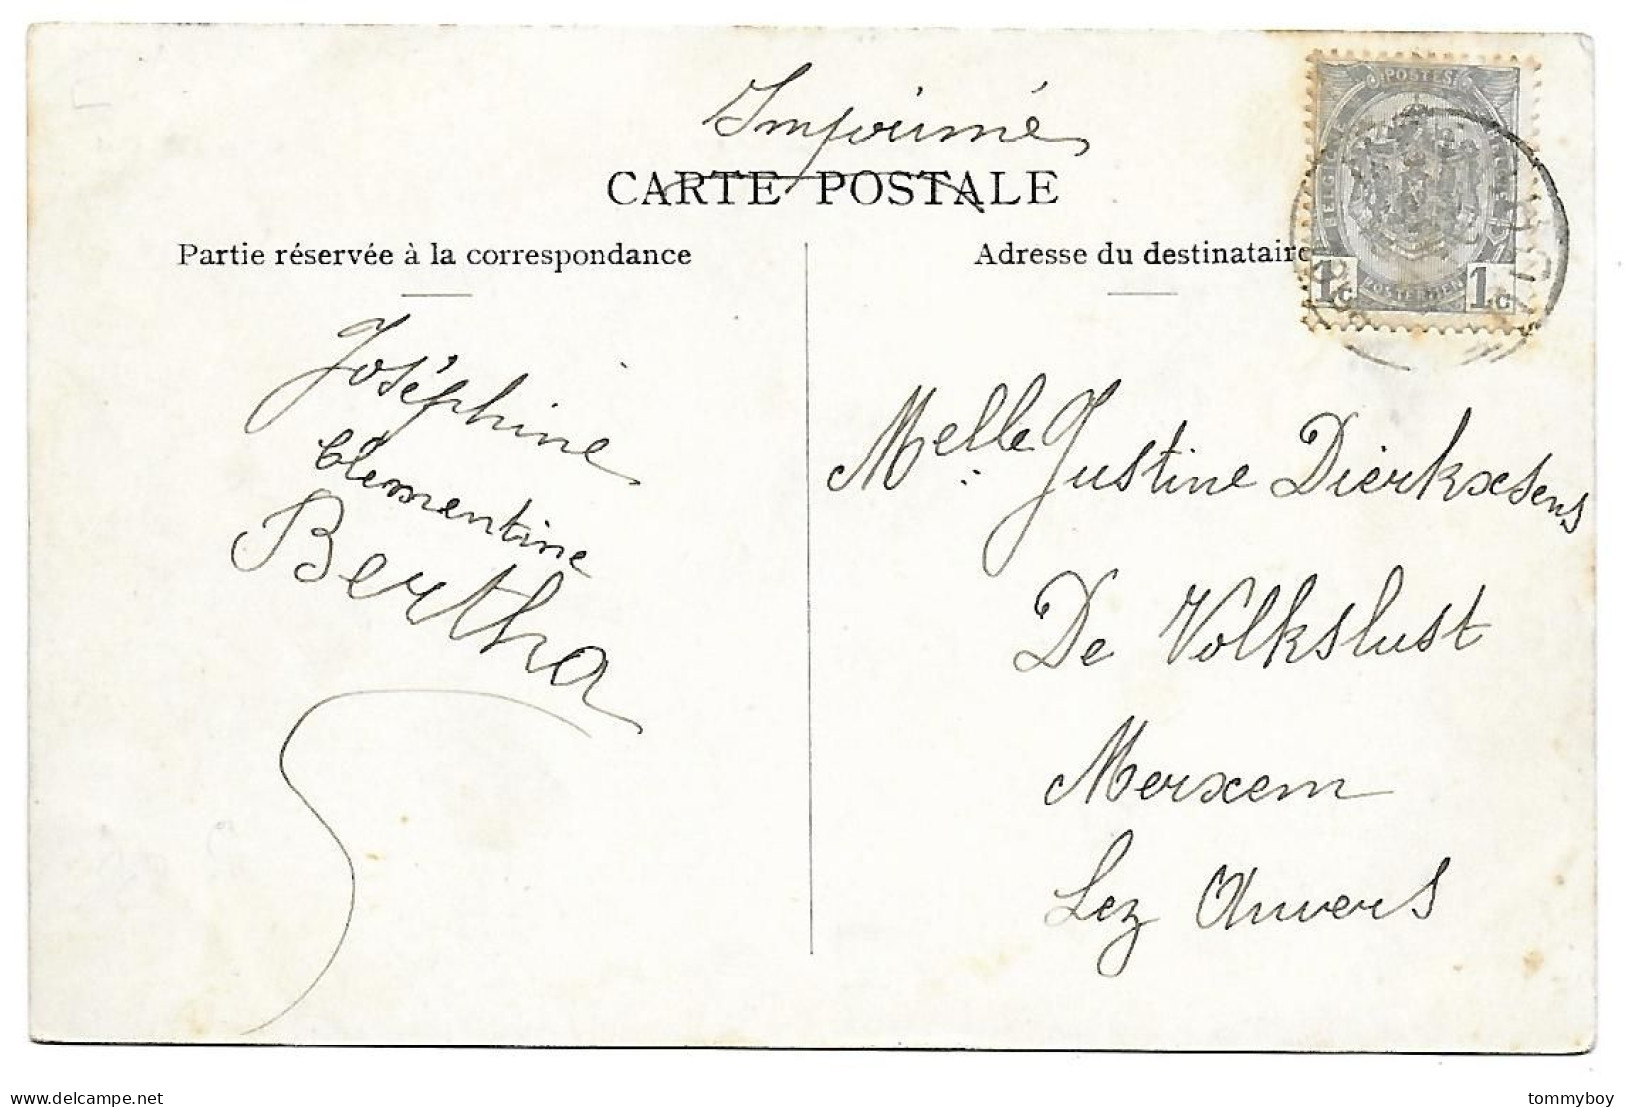 Imprimé
CARTE POSTALE
Partie réservée à la correspondance
Adresse du destinataire
POSTES
1c POSTERIJEN 1c
Joséphine
Clementine
Bertha
Melle Justine Dierkxsens
De Volkslust
Merxem
Lez Anvers
delcampe.net
tommyboy